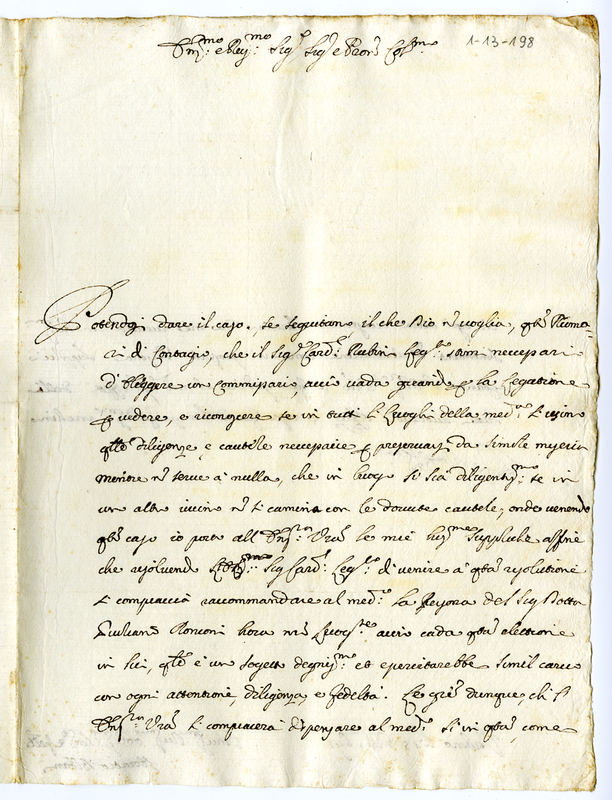 Ill.mo e Rev.mo Sig.r Sig.r e Pron Col.mo
1-13-198
Potendosi dare il caso, se seguitano, il che Dio n̄ voglia, q̄sti Rumo-
ri di Contagio, che il Sig.r Card. Rubini Leg.to stimi necessario
d'eleggere un Commissario, acciò vada girando p la Legatione
p vedere, e riconoscere se in tutti li luoghi della med.ma si usino
q̄lle diligenze, e cautele necessarie p preservarsi da simile
mentre n̄ serve à nulla, che in luogo si sia diligentiss.mo se in
un altro vicino n̄ si camina con le dovute cautele, onde venendo
q̄sto caso io porto all' Ill.ma Vra le mie hum.me suppliche affine
che risolvendo Sig. Card. Leg.to di venire a q̄sta risolutione
si compiaccia raccommandare al med.mo la persona del Sig. Dottor
Giuliano Ronconi hora mio Luogote, acciò cada q̄sta elettione
in lui, q̄le è un sogetto degniss.mo et esercitarebbe simil carico
con ogni attentione, diligenza, e fedeltà. Le grē dunque, che
Ill.ma Vra si compiacerà dispensare al med.mo sì in q̄sta, come